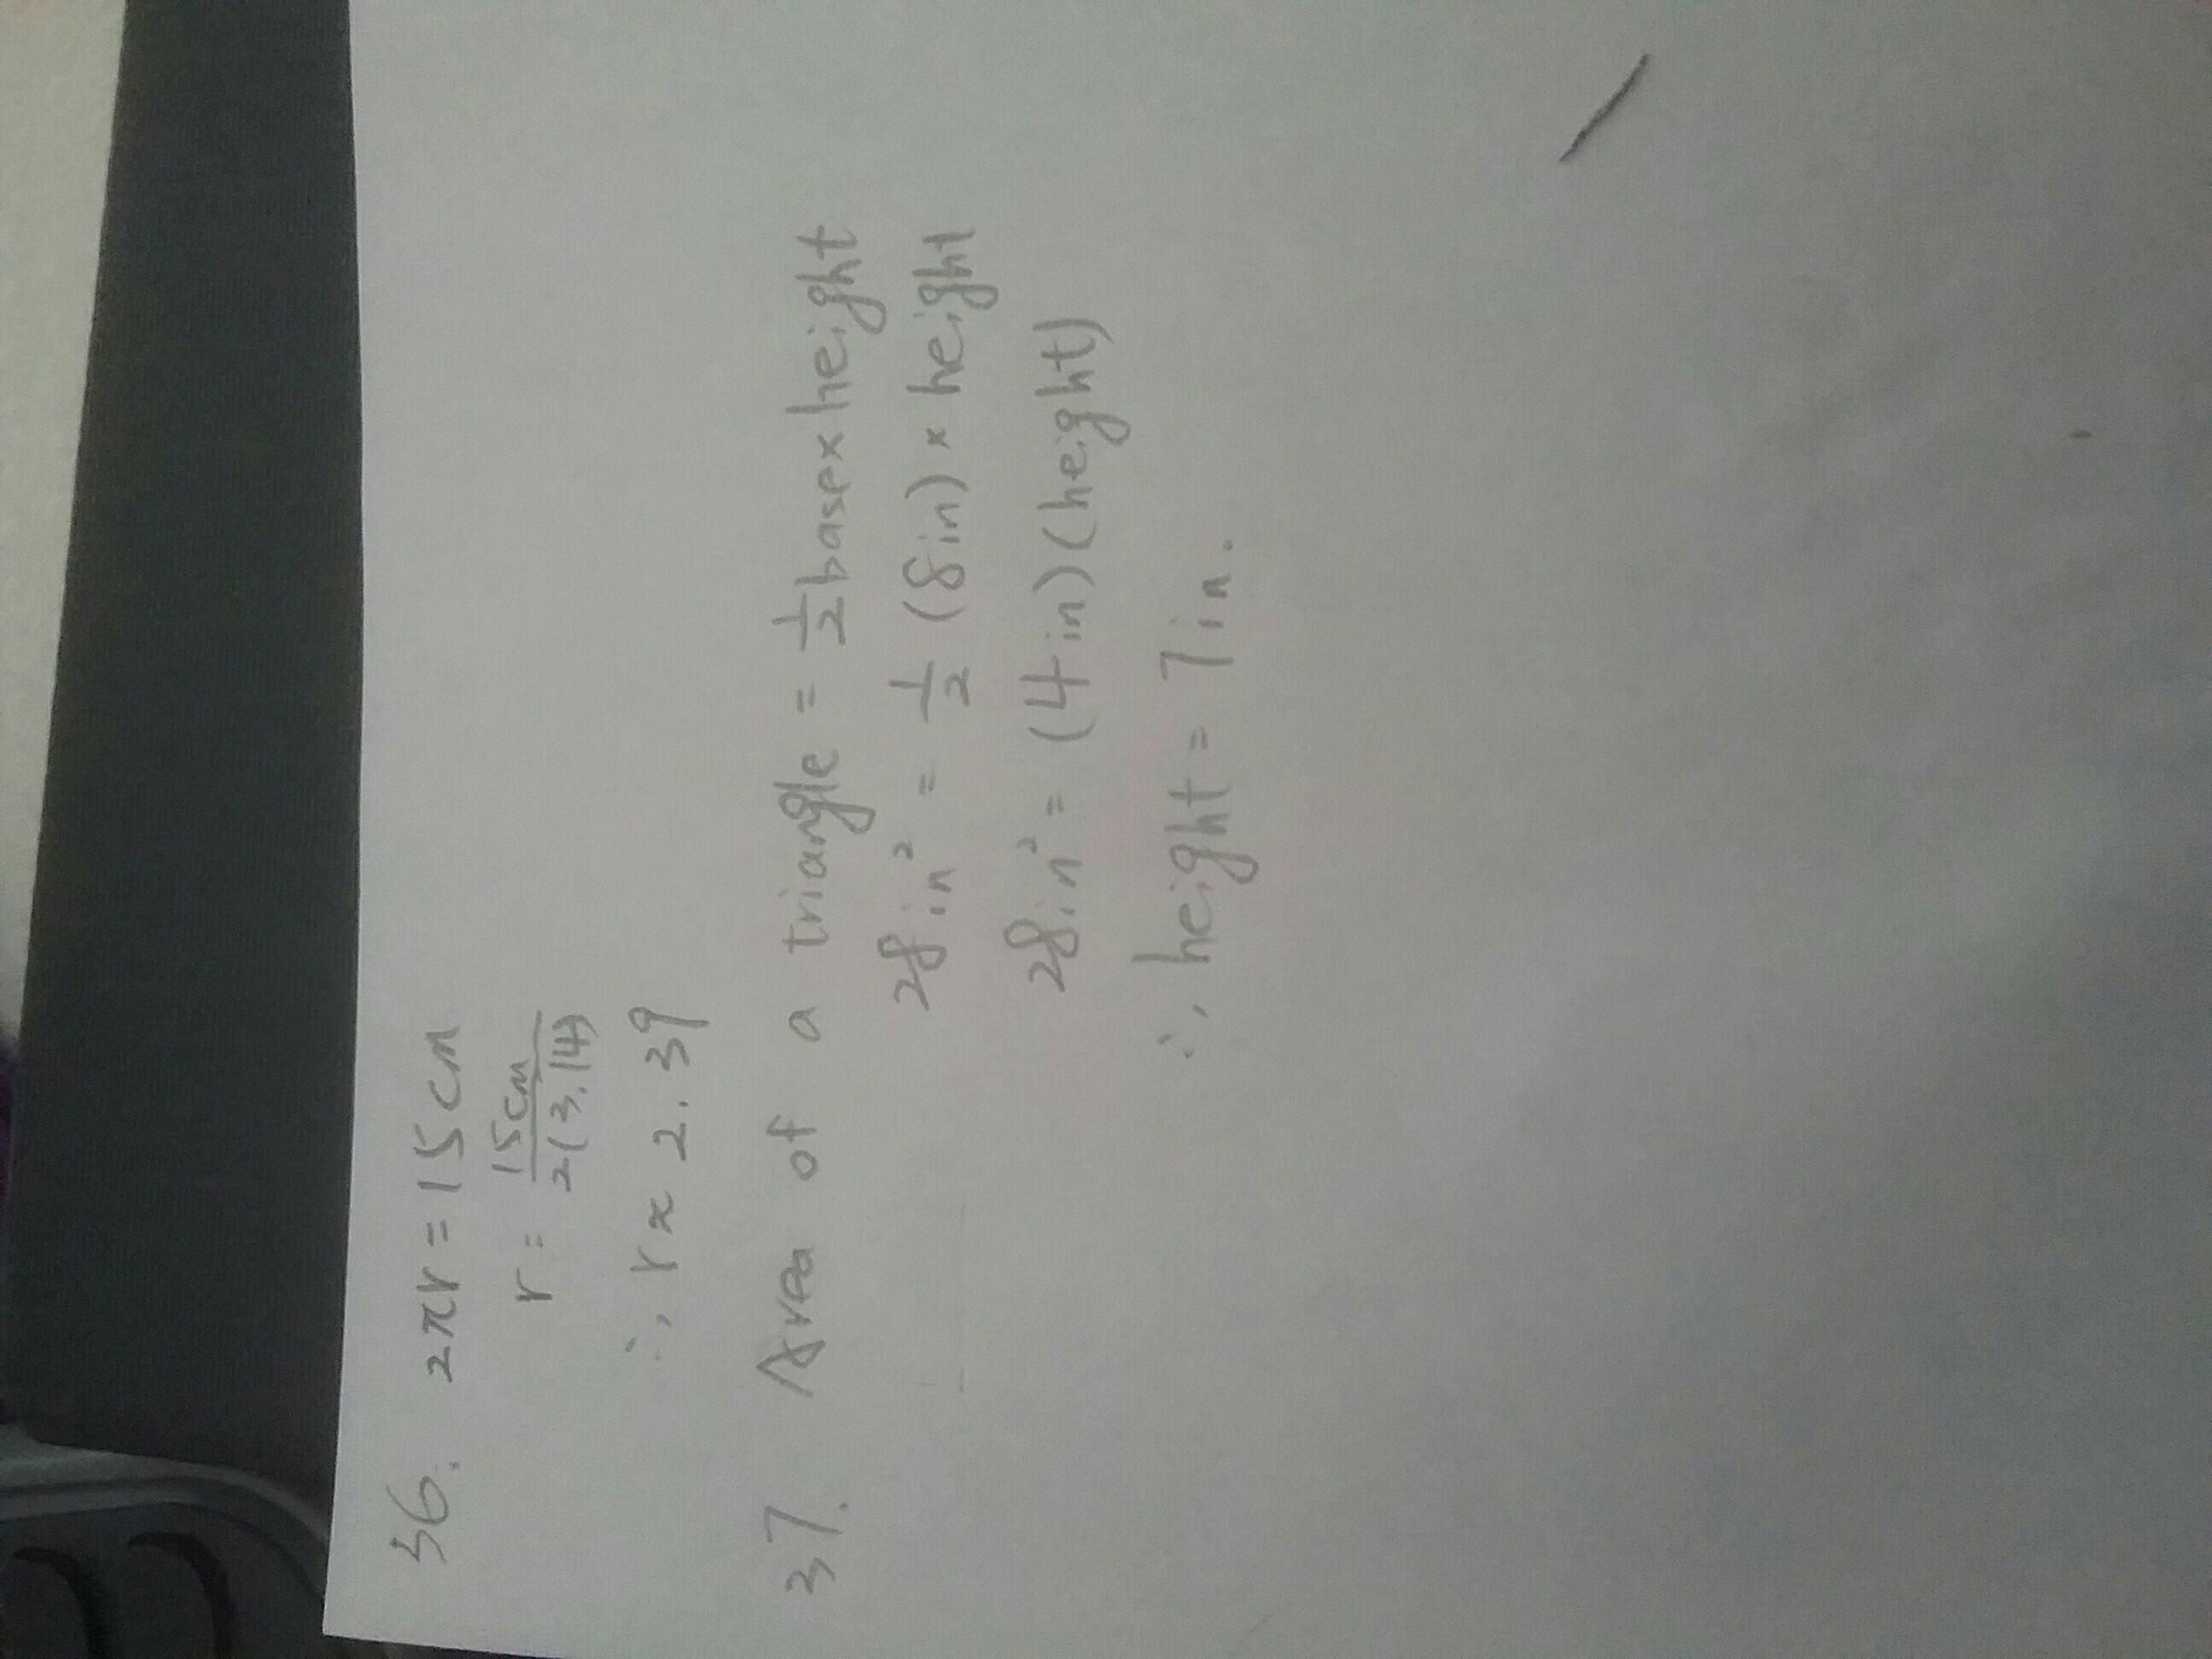 36. 2πr = 15cm
r = 15cm / 2(3.14)
∴, r ≈ 2.39
37. Area of a triangle = 1/2 base x height
28in² = 1/2 (8in) x height
28in² = (4in)(height)
∴, height = 7in.